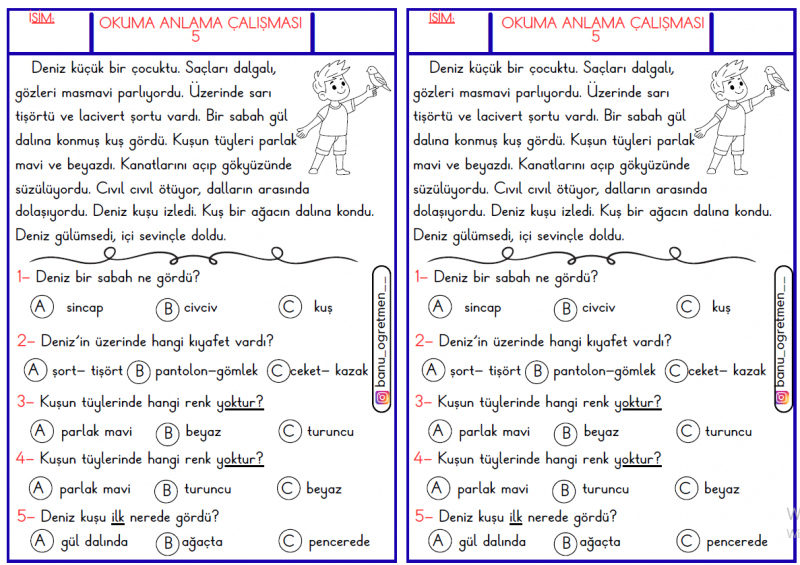 İSİM:
OKUMA ANLAMA ÇALIŞMASI
5
Deniz küçük bir çocuktu. Saçları dalgalı,
gözleri masmavi parlıyordu. Üzerinde sarı
tişörtü ve lacivert şortu vardı. Bir sabah gül
dalına konmuş kuş gördü. Kuşun tüyleri parlak
mavi ve beyazdı. Kanatlarını açıp gökyüzünde
süzülüyordu. Cıvıl cıvıl ötüyor, dalların arasında
dolaşıyordu. Deniz kuşu izledi. Kuş bir ağacın dalına kondu.
Deniz gülümsedi, içi sevinçle doldu.
1- Deniz bir sabah ne gördü?
A sincap B civciv C kuş
2- Deniz'in üzerinde hangi kıyafet vardı?
A şort- tişört B pantolon-gömlek C ceket- kazak
3- Kuşun tüylerinde hangi renk yoktur?
A parlak mavi B beyaz C turuncu
4- Kuşun tüylerinde hangi renk yoktur?
A parlak mavi B turuncu C beyaz
5- Deniz kuşu ilk nerede gördü?
A gül dalında B ağaçta C pencerede
banu_ogretmen__
İSİM:
OKUMA ANLAMA ÇALIŞMASI
5
Deniz küçük bir çocuktu. Saçları dalgalı,
gözleri masmavi parlıyordu. Üzerinde sarı
tişörtü ve lacivert şortu vardı. Bir sabah gül
dalına konmuş kuş gördü. Kuşun tüyleri parlak
mavi ve beyazdı. Kanatlarını açıp gökyüzünde
süzülüyordu. Cıvıl cıvıl ötüyor, dalların arasında
dolaşıyordu. Deniz kuşu izledi. Kuş bir ağacın dalına kondu.
Deniz gülümsedi, içi sevinçle doldu.
1- Deniz bir sabah ne gördü?
A sincap B civciv C kuş
2- Deniz'in üzerinde hangi kıyafet vardı?
A şort- tişört B pantolon-gömlek C ceket- kazak
3- Kuşun tüylerinde hangi renk yoktur?
A parlak mavi B beyaz C turuncu
4- Kuşun tüylerinde hangi renk yoktur?
A parlak mavi B turuncu C beyaz
5- Deniz kuşu ilk nerede gördü?
A gül dalında B ağaçta C pencerede
banu_ogretmen__